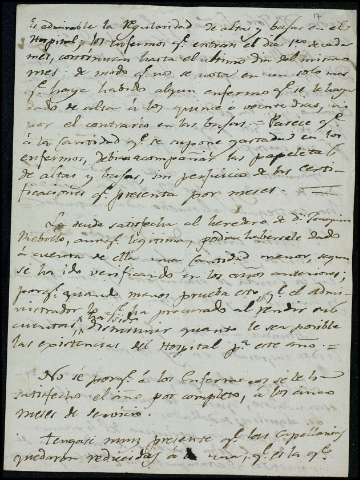 Es admirable la regularidad de altas y bajas en el
Hospital, y los enfermos qe entran el dia 1º de cada
mes, continuan hasta el ultimo dia del mismo
mes; de modo qe no se nota en un solo mes
qe haya habido algun enfermo qe se le haya
dado de alta á los quince ó veinte dias, ni
por el contrario en las bajas = Parece qe
á la cantidad qe se supone gastada en los
enfermos, debia acompañar las papeletas
de altas y bajas, sin perjuicio de las certi-
ficaciones qe presenta por meses.
La deuda satisfecha al heredero de Dn Joaquin
aunqe legitima, podia habersele dado
á cuenta de ella una cantidad menor, segun
se ha ido verificando en los años anteriores;
porqe quando menos, prueba esto qe el admi-
nistrador ha procurado al rendir sus
cuentas, disminuir quanto le sea posible
las existencias del Hospital pa este año =
No sé porqe á los Enfermeros se le ha
satisfecho el año por completo, á los cinco
meses de servicio.
Tengase muy presente qe las Capellanias
quedaron reducidas á una, y esta qe